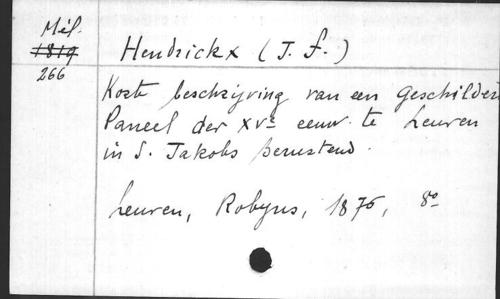 Mél.
1819
266
Hendrickx (J. f.)
Korte beschrijving van een geschilderd
Paneel der XVe eeuw te Leuven
in S. Jakobs berustend.
Leuven, Robyns, 1876, 8º